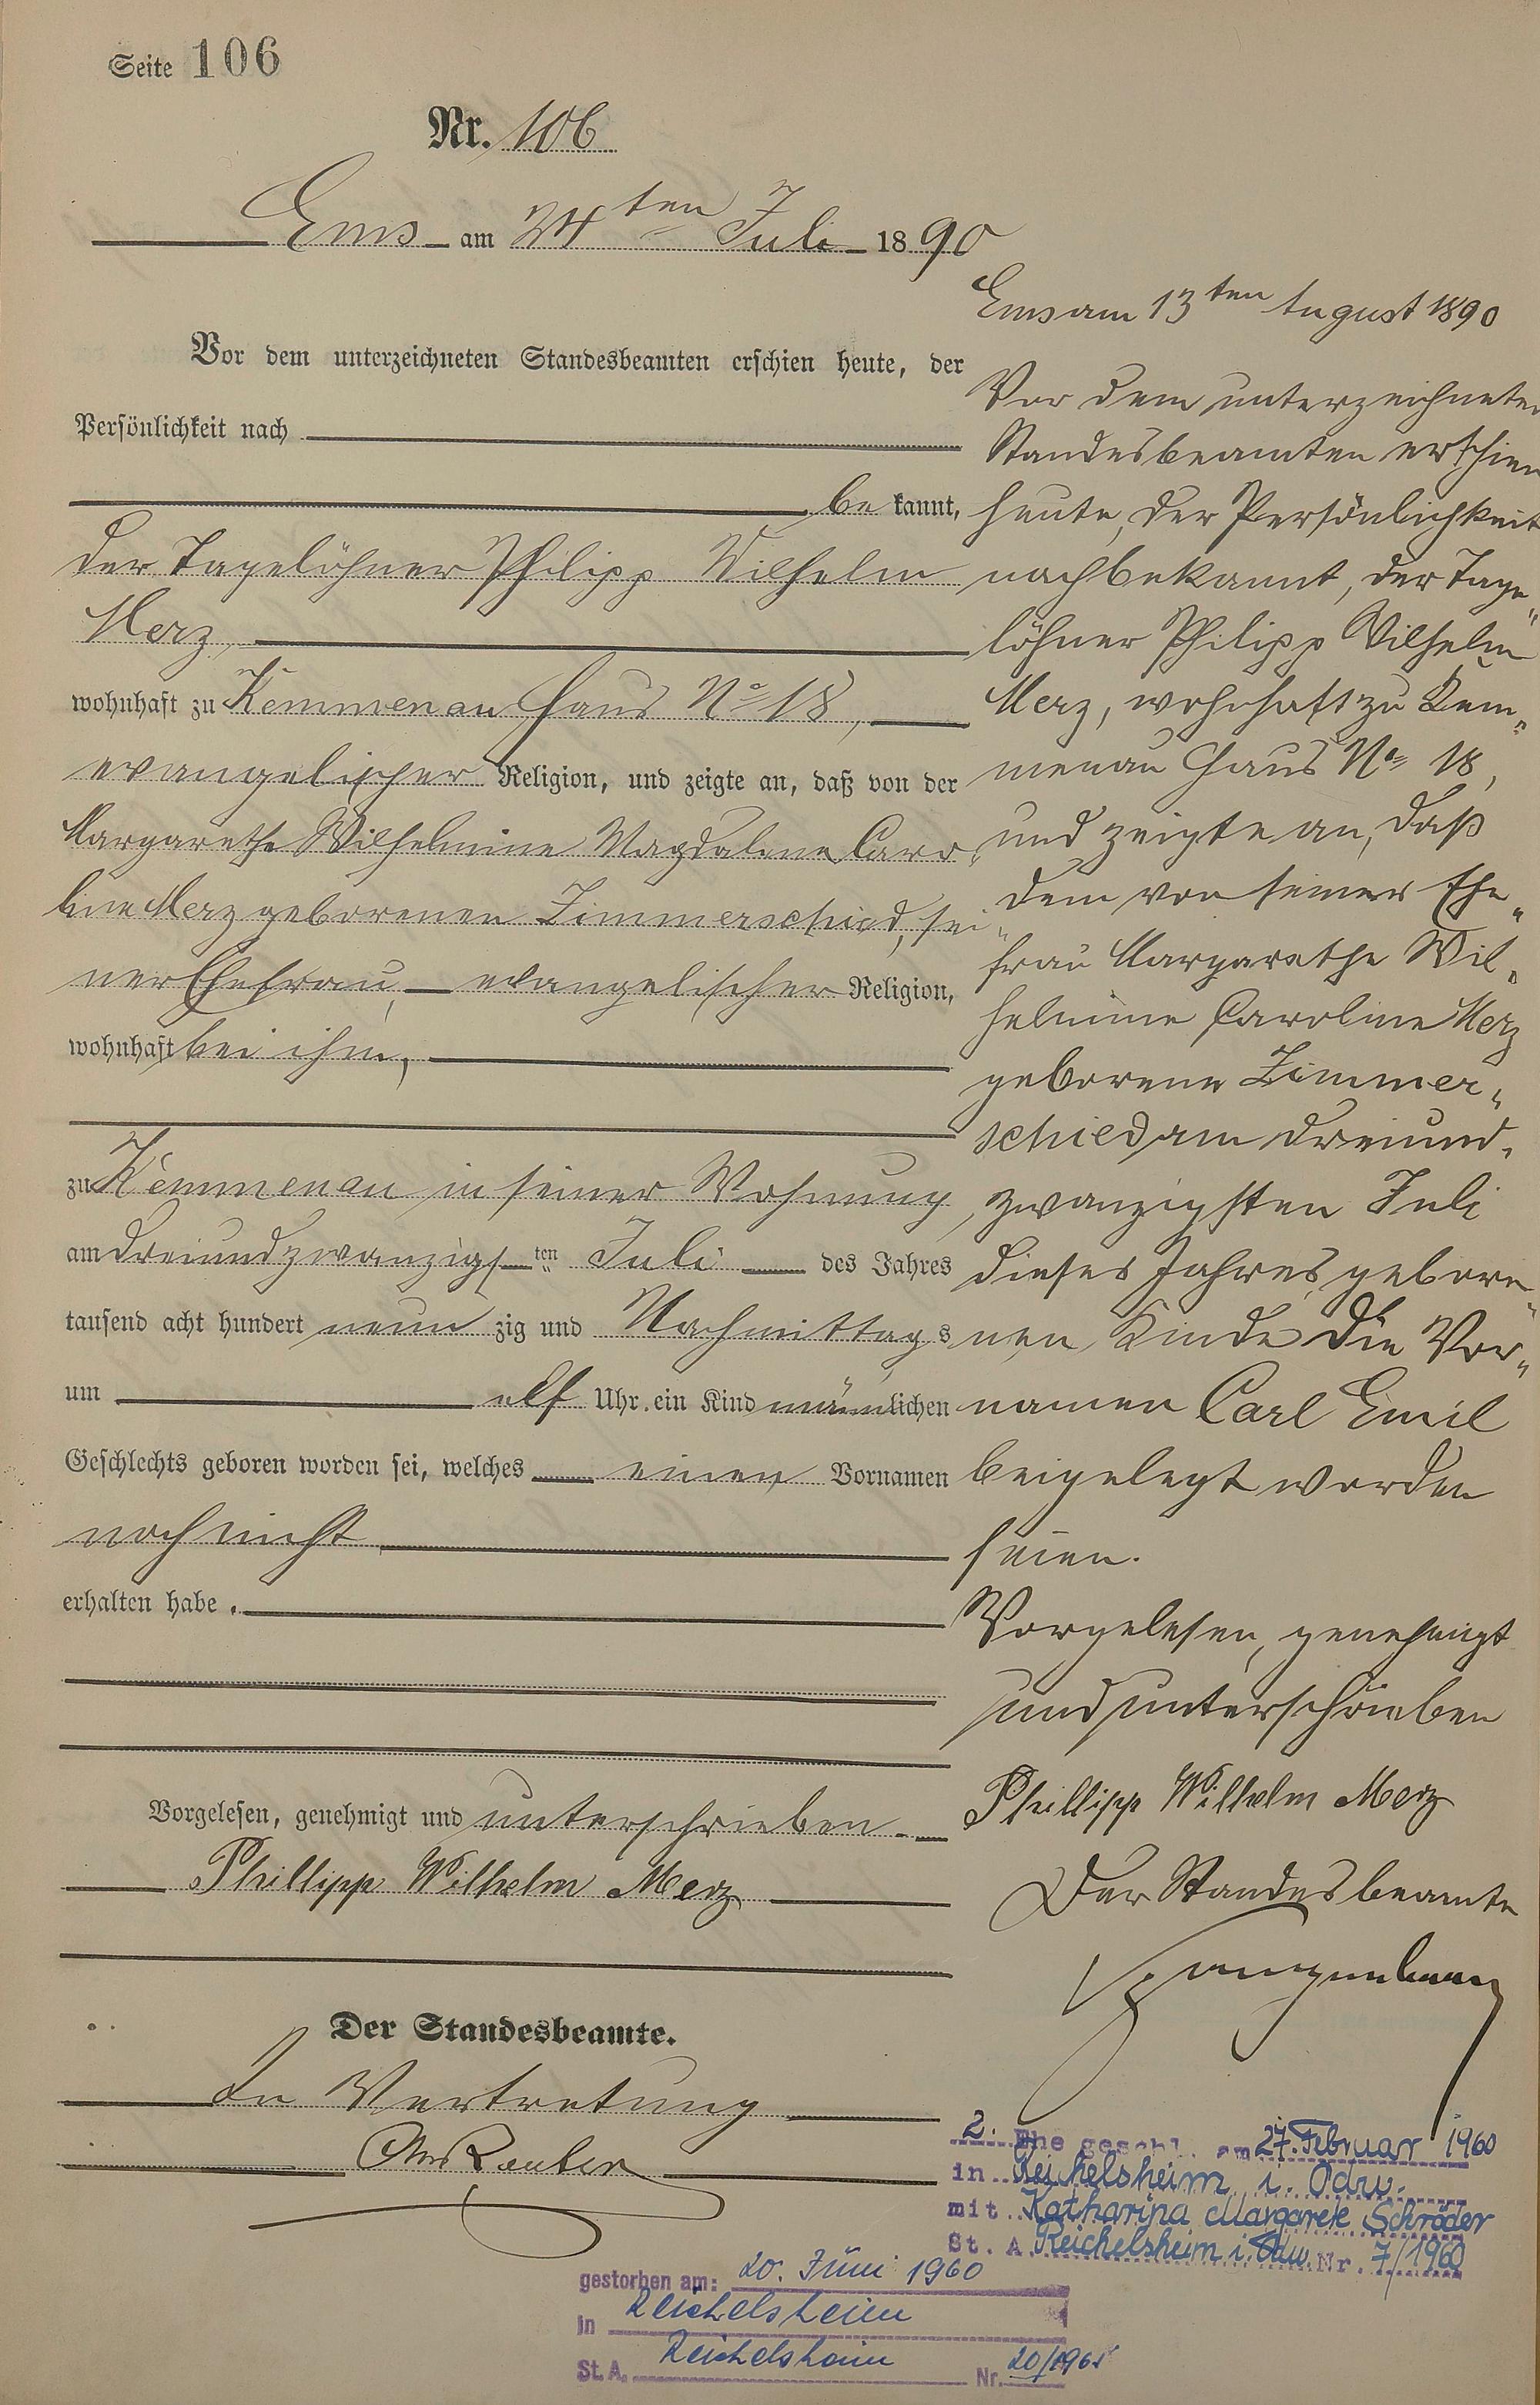 Seite 106
Nr. 106
Ems am 24ten Juli 1890
Vor dem unterzeichneten Standesbeamten erschien heute, der
Persönlichkeit nach
be kannt,
der Tagelöhner Philipp Wilhelm
Merz,
wohnhaft zu Kemmenau Haus No 18,
evangelischer Religion, und zeigte an, daß von der
Margarethe Wilhelmine Magdalene Caro„
line Merz geborenen Zimmerschied, sei„
ner Ehefrau, evangelischer Religion,
wohnhaft bei ihm,
zu Kemmenau in seiner Wohnung,
am dreiundzwanzigsten Juli des Jahres
tausend acht hundert neun zig und Nachmittags
um elf Uhr ein Kind männlichen
Geschlechts geboren worden sei, welches einen Vornamen
noch nicht
erhalten habe.
Vorgelesen, genehmigt und unterschrieben.
Phillipp Wilhelm Merz
Der Standesbeamte.
In Vertretung
Ems am 13ten August 1890
Vor dem unterzeichneten
Standesbeamten erschien
heute, der Persönlichkeit
nach bekannt, der Tage„
löhner Philipp Wilhelm
Merz, wohnhaft zu Kem„
menau Haus No 18,
und zeigte an, daß
dem von seiner Ehe„
frau Margarethe Wil„
helmine Caroline Merz
geborene Zimmer„
schied am dreiund„
zwanzigsten Juli
dieses Jahres gebore„
nen Kinde die Vor„
namen Carl Emil
beigelegt worden
seien.
Vorgelesen, genehmigt
und unterschrieben
Phillipp Wilhelm Merz
Der Standesbeamte
2. Ehe geschl. am 27. Februar 1960
in Reichelsheim i. Odw.
mit Katharina Margarete Schröder
St. A. Reichelsheim i. Odw. Nr. 7/1960
gestorben am: 20. Juni 1960
in Reichelsheim
St. A. Reichelsheim Nr.